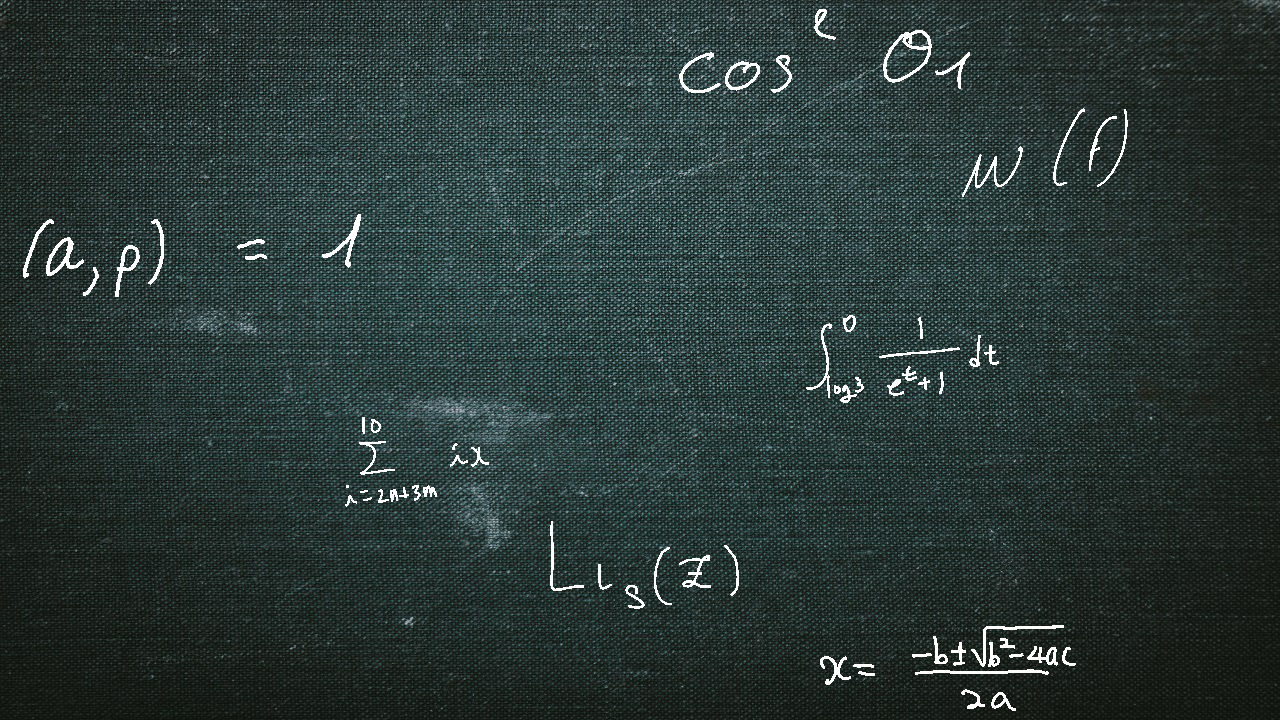 cos^2 θ_1
w(f)
(a, p) = 1
\int_{\log 3}^{0} \frac{1}{e^t+1} dt
\sum_{i=2n+3m}^{10} ix
Li_s(z)
x = \frac{-b±\sqrt{b^2-4ac}}{2a}